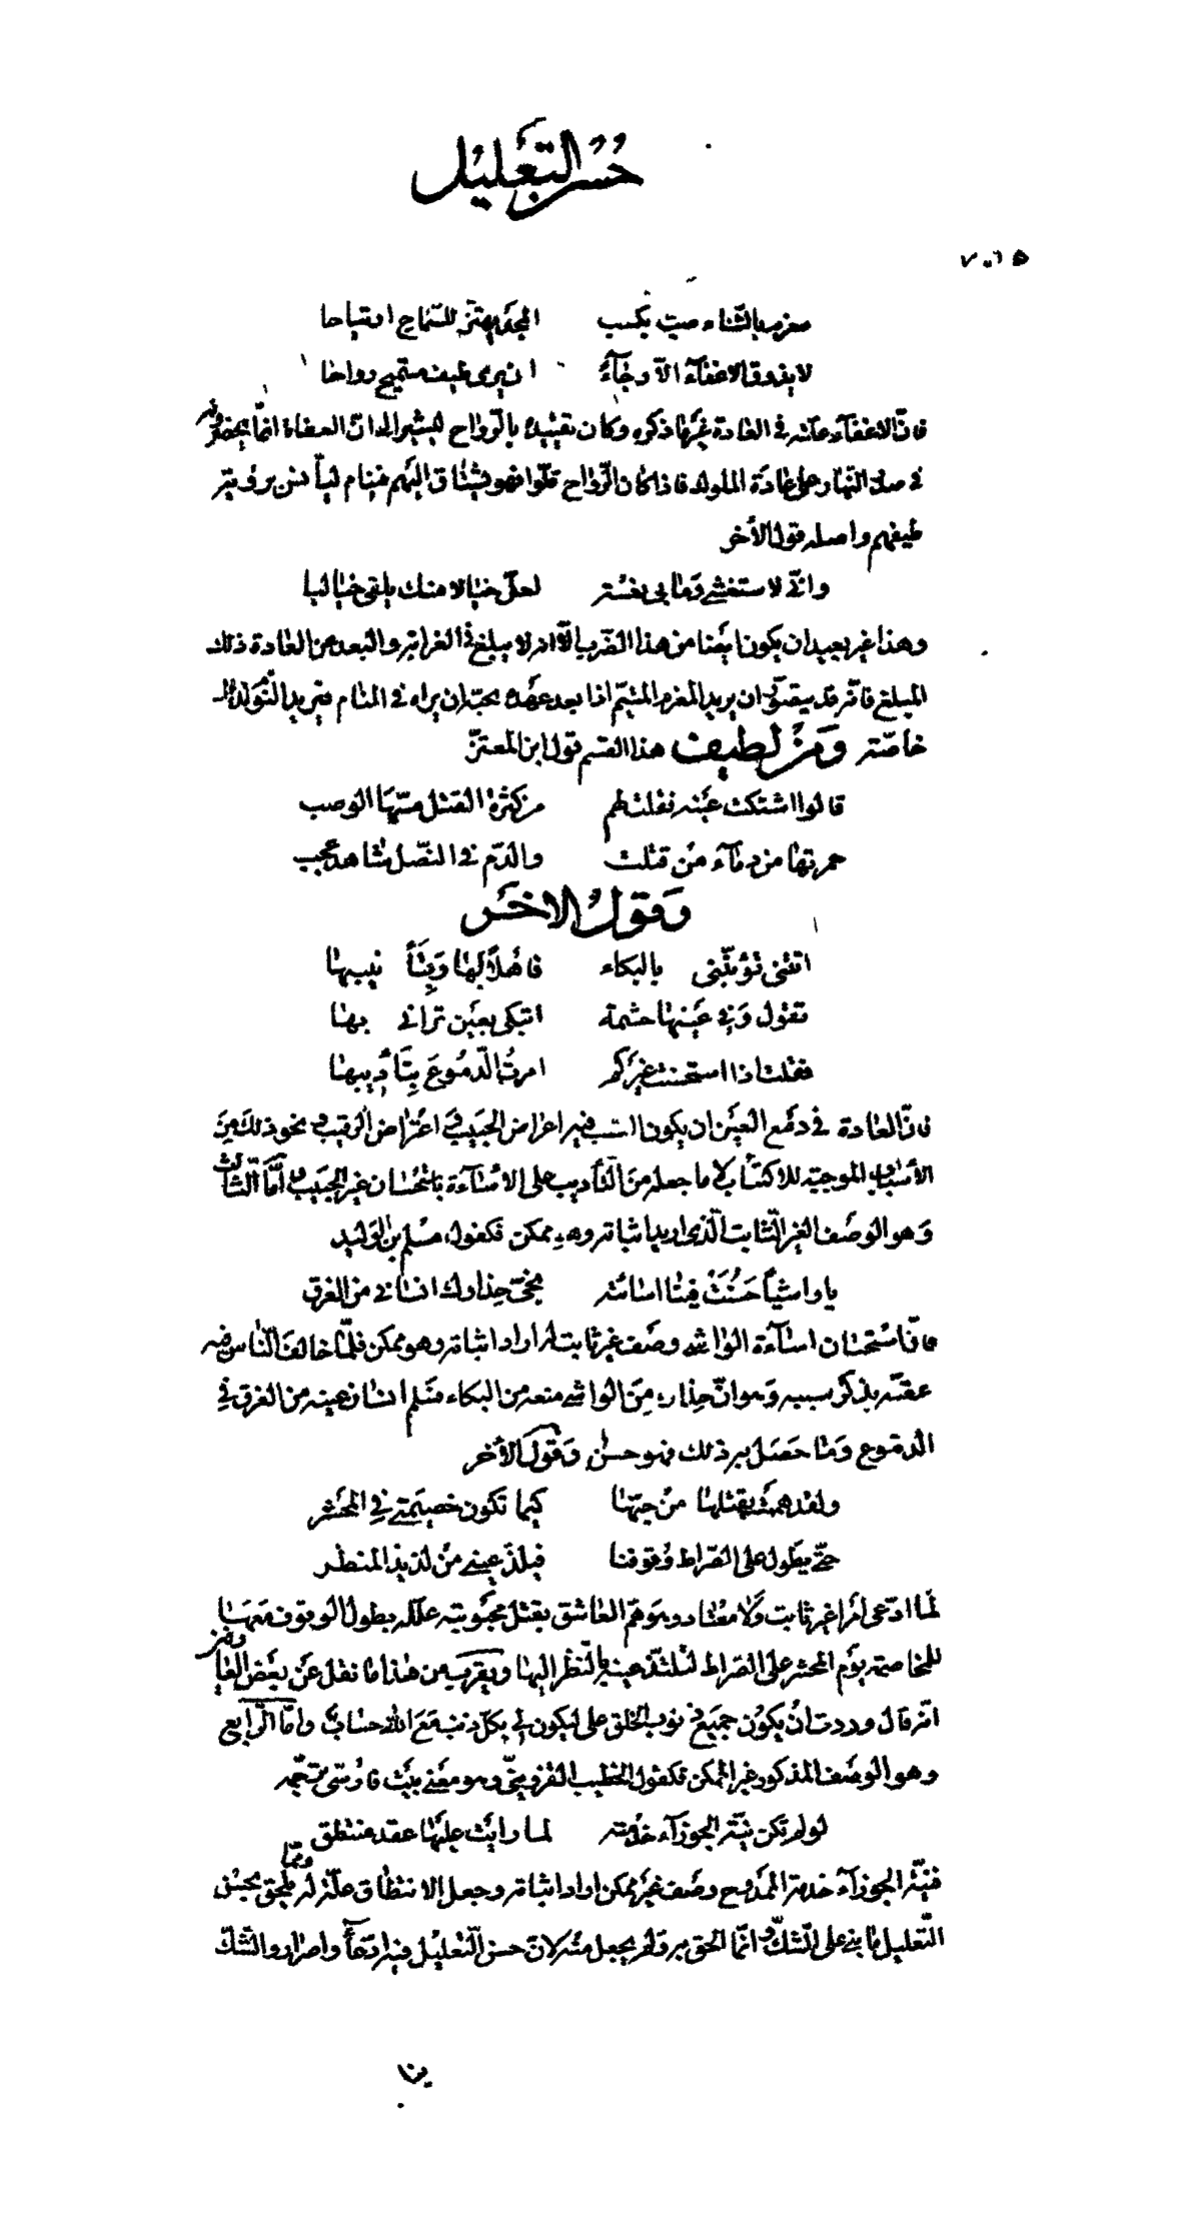 حُسن التعَليل
٧٠٦٥
مغرم بالثناء صب بكسب المجد يهتز للسّماح ارتياحا
لا يذوق الاغفآء الّا رجَآءً ان يرى طيف مستميح رواحا
فانّ الاغفآء علته فى العادة غيرُ ما ذكره وكان تقييده بالرّواح ليشير الى انّ العفاة انّما يحضرونه
فى صدر النهار على عادَة الملوك فاذا كان الرّواح قلّوا فهو يشتاق اليَهم فينام ليأنس برؤية
طيفهم واصله قول الأخر
وانّى لاستغشى وَما بى نعسَة لعلّ خيالا منك يلقى خياليا
وهذا غير بعيد ان يكون ايضا من هذا الضرب الّا انه لا يبلغ فى الغرابة والبعد عن العادة ذلك
المبلغ فانّه قد يتصوّر ان يريد المغرم المتيّم اذا بعد عهده بحبيبه ان يراه فى المنام فيريد النّوم لذلك
خاصّة وَمنْ لطيف هذا القسم قول ابن المعتزّ
قالوا اشتكت عَينه فقلت لهم من كثرة القتل مسّهَا الوصب
حمرتها من دمآء مَن قتلت والدّم فى النصّل شاهد عجب
وَقولُ الاخَر
اتتنى تؤنّبنى بالبكاء فاهلاً بها وَبتأنيبها
تقول وَفى عَينها حشمة اتبكى بعَين ترانى بها
فقلت اذا استحسنت غيرَكم امرتُ الدّمُوعَ بِتَأديبها
فانّ العادة فى دمَع العيَن ان يكون السّبب فيه اعراض الحبَيب اَو اعتراض الرقيب و نحو ذلك مِنَ
الأسَباب الموجبة للاكتئاب لا ما جعله منَ التّأديب على الاسَآءة باستحسَان غير الحبَيب وَامَّا الثّالث
وَهو الوصَف الغير الثّابت الّذى اريد اثباته وهو ممكن فكقول مسُلم بن الوَليد
يا واشيًا حَسُنَتْ فينا اسائته نجّى حِذارك انسانى من الغرق
فانّ استحسَان اسَآءة الواشى وصَف غير ثابت له اراد اثباته وهو ممكن فلمّا خالفَ النّاس فيه
عقبّه بذكر سببه وَهو انّ حِذاره مِنَ الواشى منعه من البكاء فسَلم انسان عينه من الغرق فى
الدموع وَما حصَل به ذلك فهو حسن وَقولَ الأخر
ولقد هممتُ بقتلها منْ حبّها كيما تكون خصيَمتى فى المحَشر
حتّى يطول على الصّراط وُقوفنا فيلذّ عينى منْ لذيذ المنظر
لمّا ادّعى امرا غير ثابت وَلا معتاد وهوَ همّ العاشق بقتل محبُوبته علّله بطول الوقوف معَها
للمخاصمة يوَم المحشر على الصّراط لتلتذّ عينه بالنّظر اليها ويقرب من هذا ما نقل عَن بعَض العار
انّه قال وددت انْ يكوُن جميَع ذنوب الخلق علىّ ليكون لى بكلّ ذنب مَعَ اللّه حسابٌ وامّا الرّابع
وهو الوصَف المذكور غير الممكن فكقول الخطيب القزوينىّ وهو معَنى بيَت فارسّى ترجمه
لو لم تكن نيّة الجوزآء خدْمته لما رايَت عليَها عقد منتطق
فنيّة الجوزآء خدمة الممَدوح وصَف غير ممكن اراد اثباته وجعل الانتطاق علّة له وممّا يلحق بحسن
التّعليل ما بنى على الشّكّ وَ انّما الحق به ولم يجعل منه لانّ حسن التّعليل فيه ادّعآءٌ واصرار والشّكّ
ينا